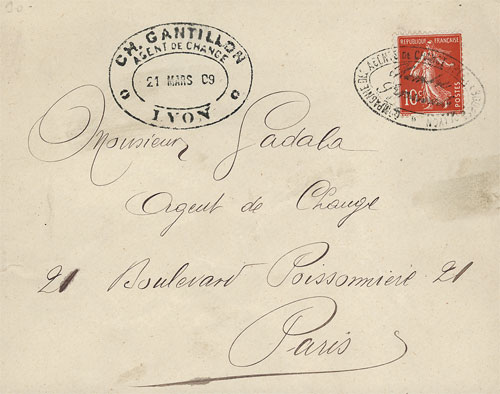 CH. GANTILLON
AGENT DE CHANGE
21 MARS 09
LYON
REPUBLIQUE FRANÇAISE
10c
POSTES
COMPAGNIE DES AGENTS de CHANGE
LYON
Monsieur Gadala
Agent de Change
21 Boulevard Poissonniere 21
Paris